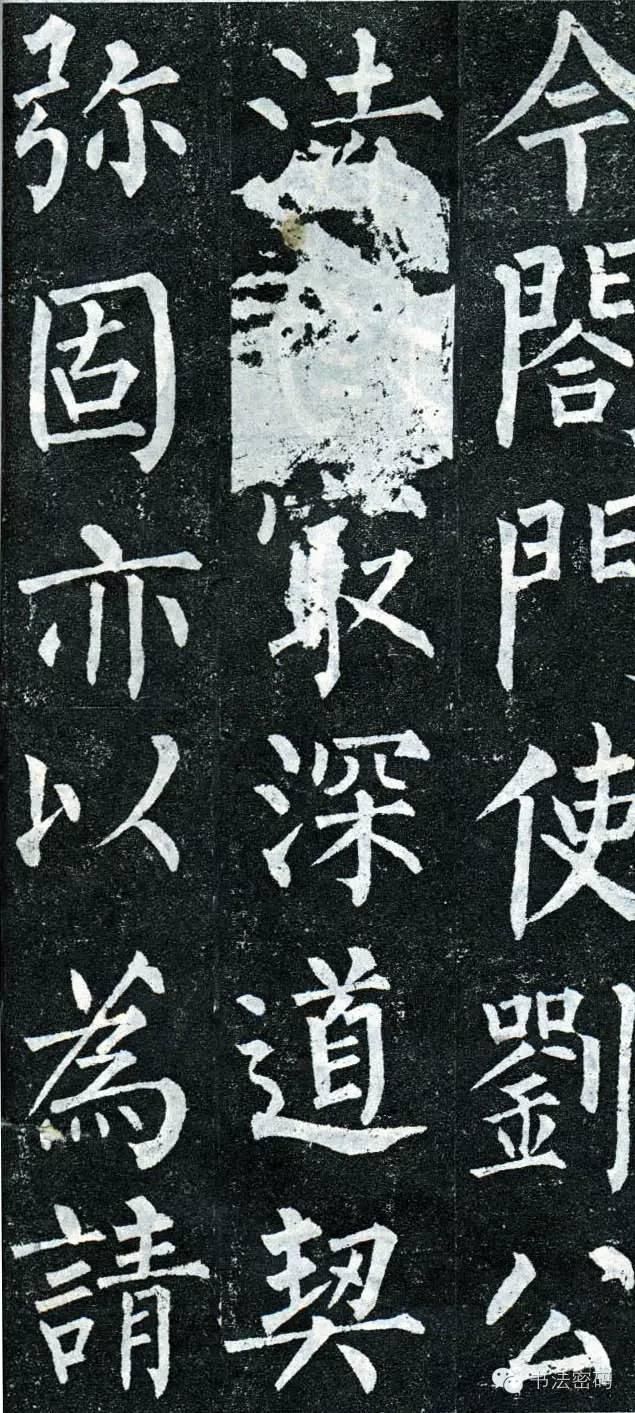 今閤門使劉公
法㝡深道契
弥固亦以為請
书法密码